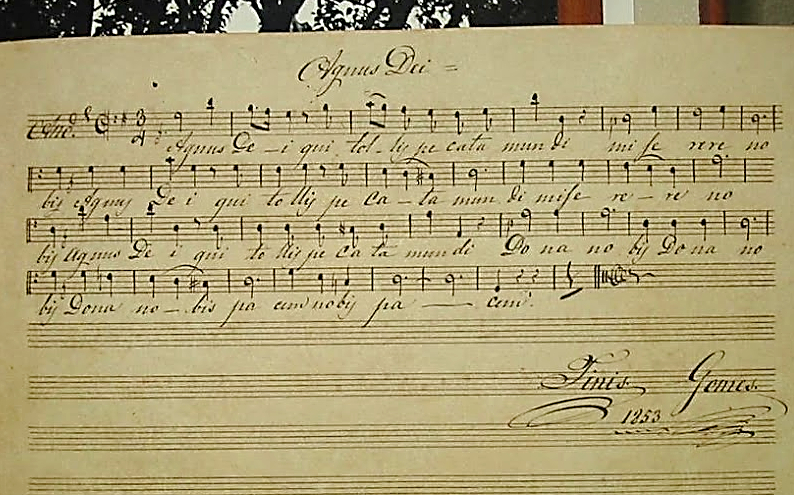 Agnus Dei =
And.e 3 4
Agnus De - i qui tol - lis pe cata mundi mi se rere no
bis Agnus De i qui to llis pe ca - ta mun di mise re - re no
bis Agnus De i qui to llis pe ca ta mundi Do na no bis Do na no
bis Dona no - bis pa cem nobis pa - cem.
Finis Gomes
1853